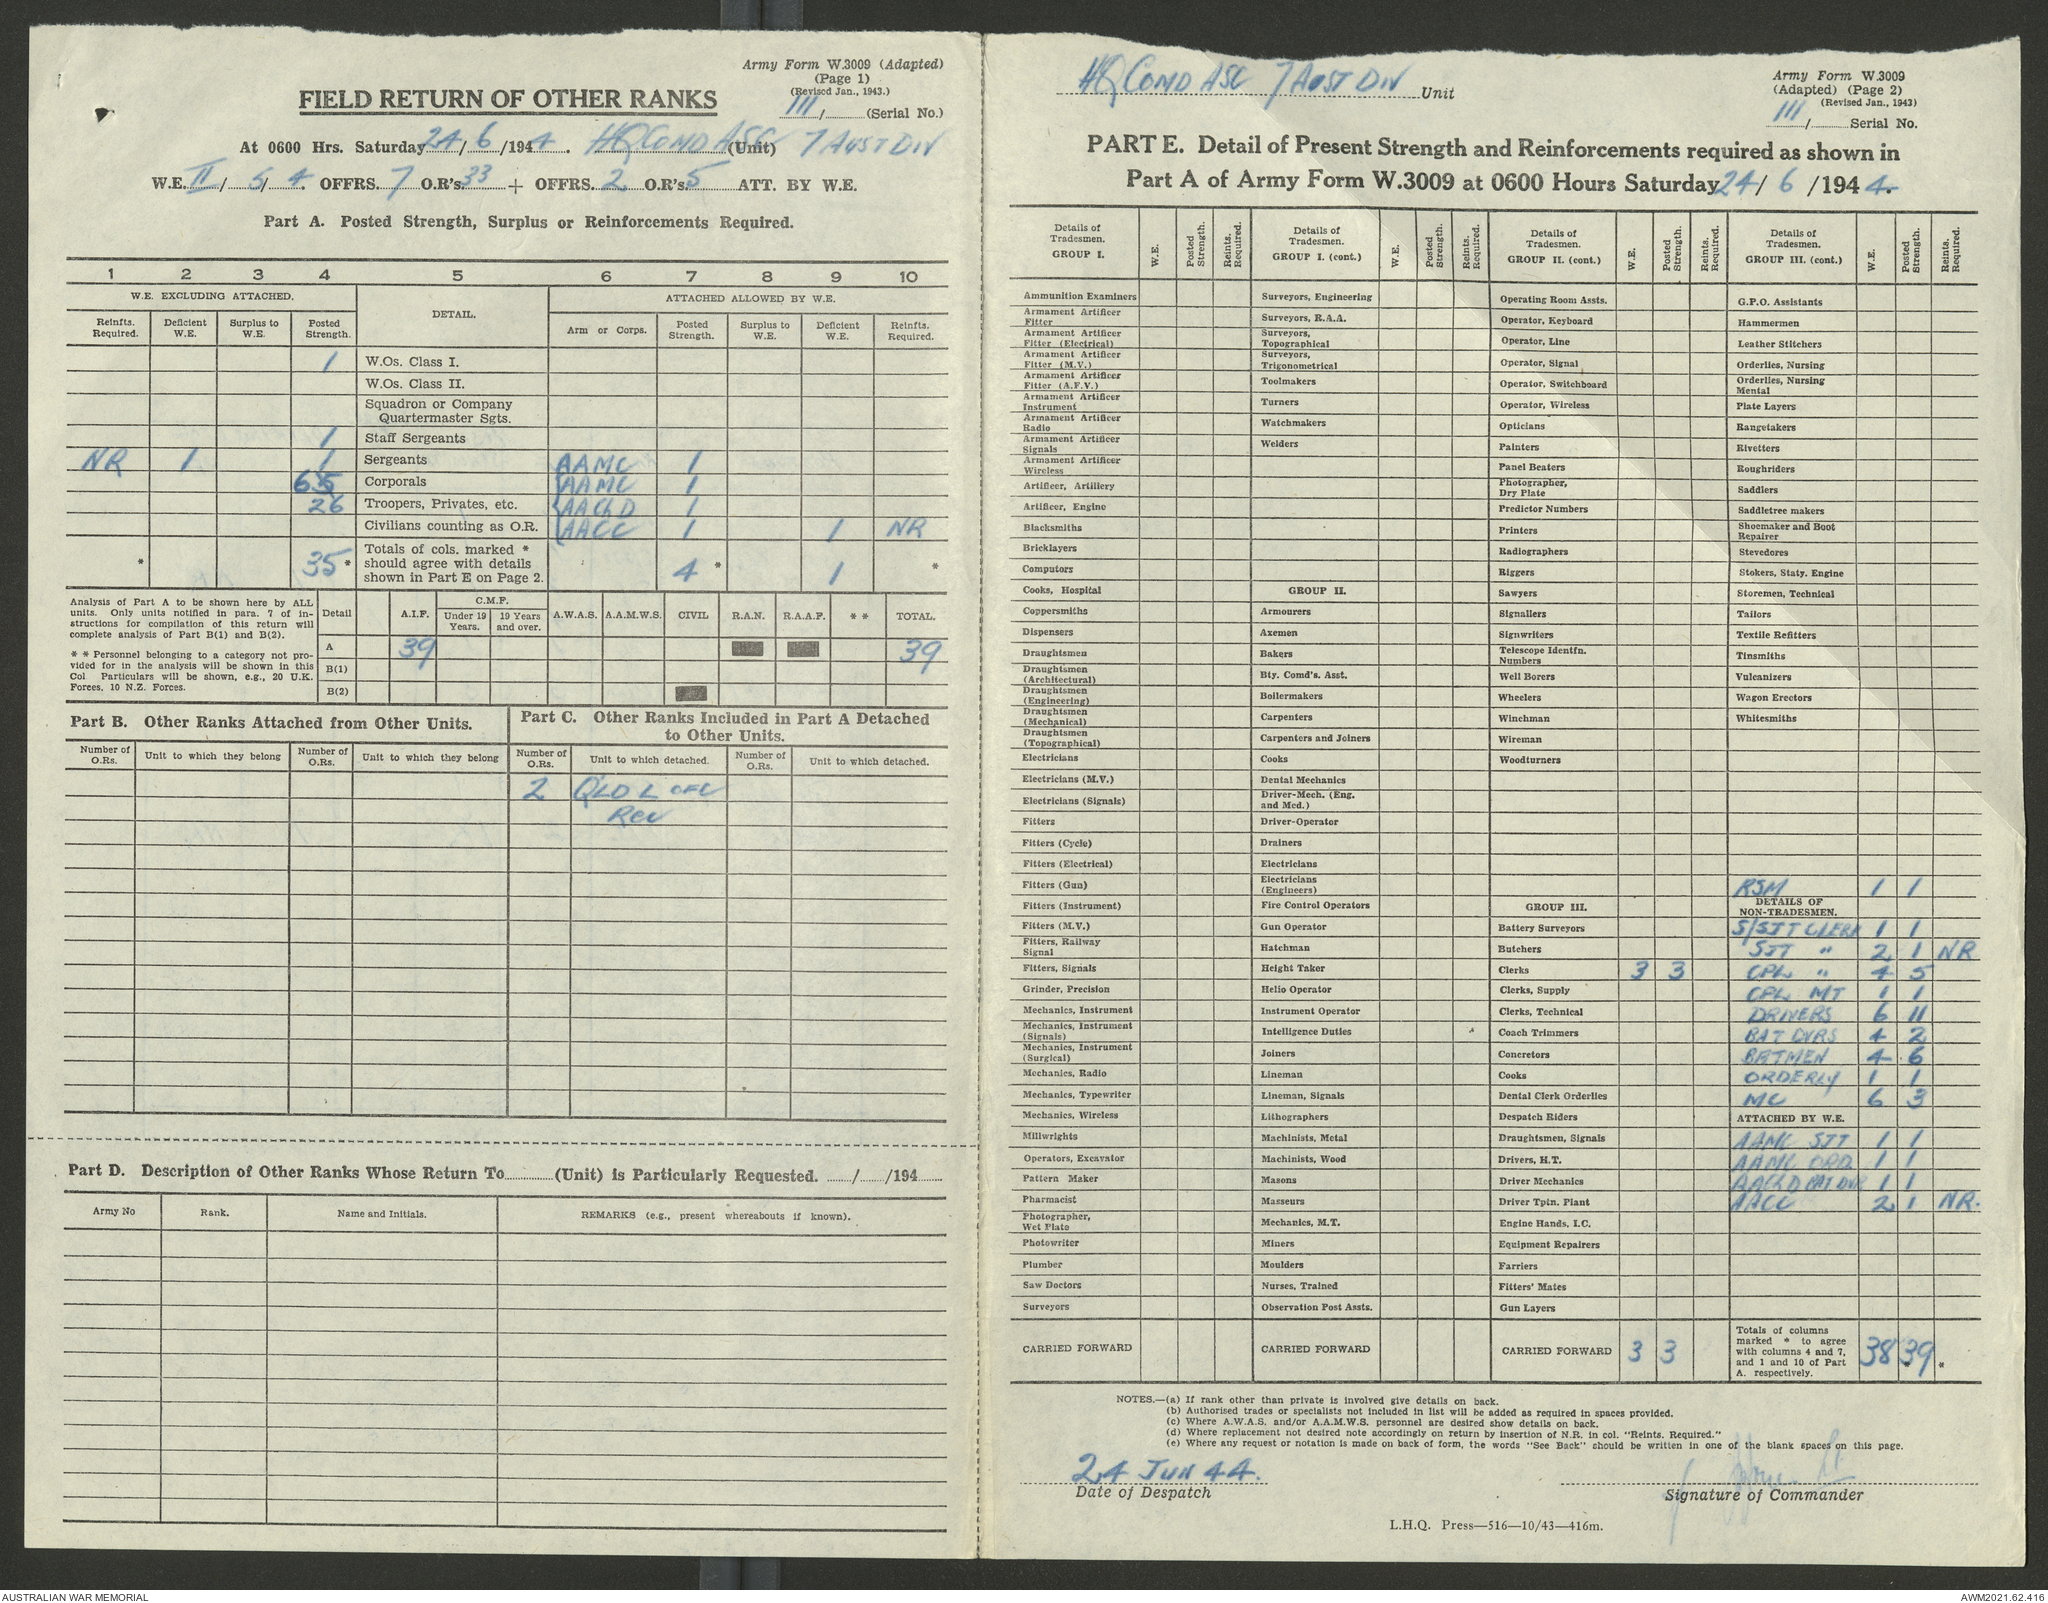 Army Form W.3009 (Adapted)
(Page 1)
(Revised Jan., 1943.)
FIELD RETURN OF OTHER RANKS
111/ (Serial No.)
At 0600 Hrs. Saturday 24/6/1944. HQ COMD ASC (Unit) 7 AUST DIV
W.E. II/5/4 OFFRS. 7 O.R's 33 + OFFRS. 2 O.R's 5 ATT. BY W.E.
Part A. Posted Strength, Surplus or Reinforcements Required.
1 2 3 4 5 6 7 8 9 10
W.E. EXCLUDING ATTACHED. DETAIL. ATTACHED ALLOWED BY W.E.
Reinfts. Required. Deficient W.E. Surplus to W.E. Posted Strength. Arm or Corps. Posted Strength. Surplus to W.E. Deficient W.E. Reinfts. Required.
1 W.Os. Class I.
W.Os. Class II.
Squadron or Company
Quartermaster Sgts.
1 Staff Sergeants
NR 1 1 Sergeants AAMC 1
6 Corporals AAMC 1
26 Troopers, Privates, etc. AAChD 1
Civilians counting as O.R. AACC 1 1 NR
* 35 * Totals of cols. marked * should agree with details shown in Part E on Page 2. 4 * 1 *
Analysis of Part A to be shown here by ALL units. Only units notified in para. 7 of instructions for compilation of this return will complete analysis of Part B(1) and B(2).
* * Personnel belonging to a category not provided for in the analysis will be shown in this Col Particulars will be shown, e.g., 20 U.K. Forces, 10 N.Z. Forces.
Detail A.I.F. C.M.F. Under 19 Years. 19 Years and over. A.W.A.S. A.A.M.W.S. CIVIL R.A.N. R.A.A.F. * * TOTAL.
A 39 39
B(1)
B(2)
Part B. Other Ranks Attached from Other Units.
Part C. Other Ranks Included in Part A Detached to Other Units.
Number of O.Rs. Unit to which they belong Number of O.Rs. Unit to which they belong Number of O.Rs. Unit to which detached. Number of O.Rs. Unit to which detached.
2 QLD L OF C
Rec
Part D. Description of Other Ranks Whose Return To (Unit) is Particularly Requested. / /194
Army No Rank. Name and Initials. REMARKS (e.g., present whereabouts if known).
HQ COMD ASC 7 AUST DIV Unit
Army Form W.3009
(Adapted) (Page 2)
(Revised Jan., 1943)
111/ Serial No.
PART E. Detail of Present Strength and Reinforcements required as shown in
Part A of Army Form W.3009 at 0600 Hours Saturday 24/6/1944.
Details of Tradesmen. GROUP I. W.E. Posted Strength. Reints. Required.
Ammunition Examiners
Armament Artificer Fitter
Armament Artificer Fitter (Electrical)
Armament Artificer Fitter (M.V.)
Armament Artificer Fitter (A.F.V.)
Armament Artificer Instrument
Armament Artificer Radio
Armament Artificer Signals
Armament Artificer Wireless
Artificer, Artillery
Artificer, Engine
Blacksmiths
Bricklayers
Computors
Cooks, Hospital
Coppersmiths
Dispensers
Draughtsmen
Draughtsmen (Architectural)
Draughtsmen (Engineering)
Draughtsmen (Mechanical)
Draughtsmen (Topographical)
Electricians
Electricians (M.V.)
Electricians (Signals)
Fitters
Fitters (Cycle)
Fitters (Electrical)
Fitters (Gun)
Fitters (Instrument)
Fitters (M.V.)
Fitters, Railway Signal
Fitters, Signals
Grinder, Precision
Mechanics, Instrument
Mechanics, Instrument (Signals)
Mechanics, Instrument (Surgical)
Mechanics, Radio
Mechanics, Typewriter
Mechanics, Wireless
Millwrights
Operators, Excavator
Pattern Maker
Pharmacist
Photographer, Wet Plate
Photowriter
Plumber
Saw Doctors
Surveyors
CARRIED FORWARD
Details of Tradesmen. GROUP I. (cont.) W.E. Posted Strength. Reints. Required.
Surveyors, Engineering
Surveyors, R.A.A.
Surveyors, Topographical
Surveyors, Trigonometrical
Toolmakers
Turners
Watchmakers
Welders
GROUP II.
Armourers
Axemen
Bakers
Bty. Comd's. Asst.
Boilermakers
Carpenters
Carpenters and Joiners
Cooks
Dental Mechanics
Driver-Mech. (Eng. and Med.)
Driver-Operator
Drainers
Electricians
Electricians (Engineers)
Fire Control Operators
Gun Operator
Hatchman
Height Taker
Helio Operator
Instrument Operator
Intelligence Duties
Joiners
Lineman
Lineman, Signals
Lithographers
Machinists, Metal
Machinists, Wood
Masons
Masseurs
Mechanics, M.T.
Miners
Moulders
Nurses, Trained
Observation Post Assts.
CARRIED FORWARD
Details of Tradesmen. GROUP II. (cont.) W.E. Posted Strength. Reints. Required.
Operating Room Assts.
Operator, Keyboard
Operator, Line
Operator, Signal
Operator, Switchboard
Operator, Wireless
Opticians
Painters
Panel Beaters
Photographer, Dry Plate
Predictor Numbers
Printers
Radiographers
Riggers
Sawyers
Signallers
Signwriters
Telescope Identfn. Numbers
Well Borers
Wheelers
Winchman
Wireman
Woodturners
GROUP III.
Battery Surveyors
Butchers
Clerks 3 3
Clerks, Supply
Clerks, Technical
Coach Trimmers
Concretors
Cooks
Dental Clerk Orderlies
Despatch Riders
Draughtsmen, Signals
Drivers, H.T.
Driver Mechanics
Driver Tptn. Plant
Engine Hands, I.C.
Equipment Repairers
Farriers
Fitters' Mates
Gun Layers
CARRIED FORWARD 3 3
Details of Tradesmen. GROUP III. (cont.) W.E. Posted Strength. Reints. Required.
G.P.O. Assistants
Hammermen
Leather Stitchers
Orderlies, Nursing
Orderlies, Nursing Mental
Plate Layers
Rangetakers
Rivetters
Roughriders
Saddlers
Saddletree makers
Shoemaker and Boot Repairer
Stevedores
Stokers, Staty. Engine
Storemen, Technical
Tailors
Textile Refitters
Tinsmiths
Vulcanizers
Wagon Erectors
Whitesmiths
RSM 1 1
DETAILS OF NON-TRADESMEN.
S/SJT CLERK 1 1
SJT " 2 1 NR
CPL " 4 5
CPL MT 1 1
DRIVERS 6 11
BAT DVRS 4 2
BATMEN 4 6
ORDERLY 1 1
MC 6 3
ATTACHED BY W.E.
AAMC SJT 1 1
AAMC ORD. 1 1
AAChD BAT DVR 1 1
AACC 2 1 NR.
Totals of columns marked * to agree with columns 4 and 7, and 1 and 10 of Part A. respectively. 38 39 * *
NOTES.—(a) If rank other than private is involved give details on back.
(b) Authorised trades or specialists not included in list will be added as required in spaces provided.
(c) Where A.W.A.S. and/or A.A.M.W.S. personnel are desired show details on back.
(d) Where replacement not desired note accordingly on return by insertion of N.R. in col. "Reints. Required."
(e) Where any request or notation is made on back of form, the words "See Back" should be written in one of the blank spaces on this page.
24 JUN 44.
Date of Despatch
Signature of Commander
L.H.Q. Press—516—10/43—416m.
AUSTRALIAN WAR MEMORIAL
AWM2021.62.416